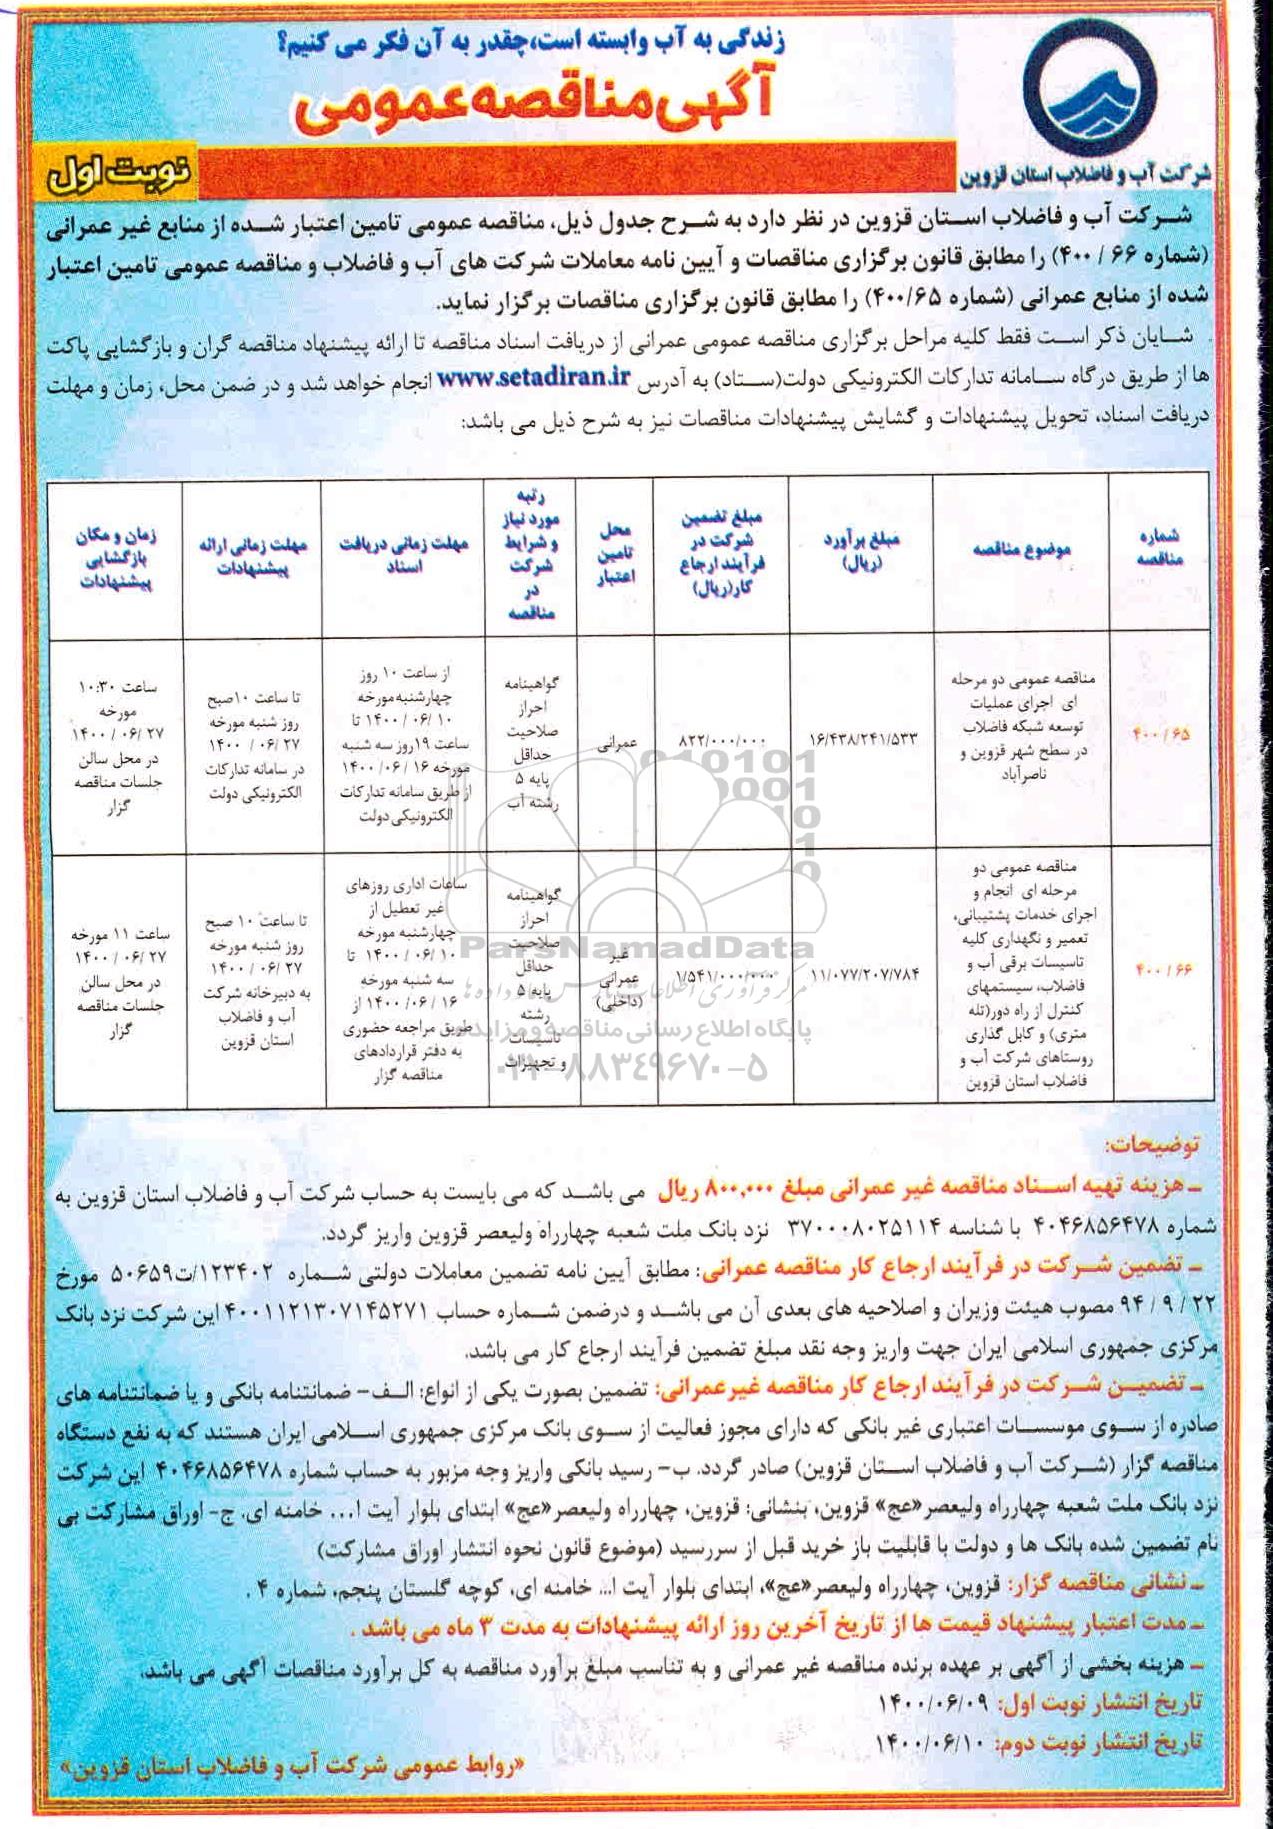 زندگی به آب وابسته است،چقدر به آن فکر می کنیم؟
آگهی مناقصه عمومی
نوبت اول
شرکت آب و فاضلاب استان قزوین
شرکت آب و فاضلاب استان قزوین در نظر دارد به شرح جدول ذیل، مناقصه عمومی تامین اعتبار شده از منابع غیر عمرانی
(شماره ۶۶ / ۴۰۰) را مطابق قانون برگزاری مناقصات و آیین نامه معاملات شرکت های آب و فاضلاب و مناقصه عمومی تامین اعتبار
شده از منابع عمرانی (شماره ۴۰۰/۶۵) را مطابق قانون برگزاری مناقصات برگزار نماید.
شایان ذکر است فقط کلیه مراحل برگزاری مناقصه عمومی عمرانی از دریافت اسناد مناقصه تا ارائه پیشنهاد مناقصه گران و بازگشایی پاکت
ها از طریق درگاه سامانه تدارکات الکترونیکی دولت(ستاد) به آدرس www.setadiran.ir انجام خواهد شد و در ضمن محل، زمان و مهلت
دریافت اسناد، تحویل پیشنهادات و گشایش پیشنهادات مناقصات نیز به شرح ذیل می باشد:
شماره
مناقصه
موضوع مناقصه
مبلغ برآورد
(ریال)
مبلغ تضمین
شرکت در
فرآیند ارجاع
کار(ریال)
محل
تامین
اعتبار
رتبه
مورد نیاز
و شرایط
شرکت
در
مناقصه
مهلت زمانی دریافت
اسناد
مهلت زمانی ارائه
پیشنهادات
زمان و مکان
بازگشایی
پیشنهادات
۴۰۰ / ۶۵
مناقصه عمومی دو مرحله
ای اجرای عملیات
توسعه شبکه فاضلاب
در سطح شهر قزوین و
ناصرآباد
۱۶/۴۳۸/۲۴۱/۵۳۳
۸۲۲/۰۰۰/۰۰۰
عمرانی
گواهینامه
احراز
صلاحیت
حداقل
پایه ۵
رشته آب
از ساعت ۱۰ روز
چهارشنبه مورخه
۱۰ / ۰۶ / ۱۴۰۰ تا
ساعت ۱۹ روز سه شنبه
مورخه ۱۶ / ۰۶ / ۱۴۰۰
از طریق سامانه تدارکات
الکترونیکی دولت
تا ساعت ۱۰صبح
روز شنبه مورخه
۲۷ / ۰۶ / ۱۴۰۰
در سامانه تدارکات
الکترونیکی دولت
ساعت ۱۰:۳۰
مورخه
۲۷ / ۰۶ / ۱۴۰۰
در محل سالن
جلسات مناقصه
گزار
۴۰۰ / ۶۶
مناقصه عمومی دو
مرحله ای انجام و
اجرای خدمات پشتیبانی،
تعمیر و نگهداری کلیه
تاسیسات برقی آب و
فاضلاب، سیستمهای
کنترل از راه دور(تله
متری) و کابل گذاری
روستاهای شرکت آب و
فاضلاب استان قزوین
۱۱/۰۷۷/۲۰۷/۷۸۴
۱/۵۴۱/۰۰۰/۰۰۰
غیر
عمرانی
(داخلی)
گواهینامه
احراز
صلاحیت
حداقل
پایه ۵
رشته
تاسیسات
و تجهیزات
ساعات اداری روزهای
غیر تعطیل از
چهارشنبه مورخه
۱۰ / ۰۶ / ۱۴۰۰ تا
سه شنبه مورخه
۱۶ / ۰۶ / ۱۴۰۰ از
طریق مراجعه حضوری
به دفتر قراردادهای
مناقصه گزار
تا ساعت ۱۰ صبح
روز شنبه مورخه
۲۷ / ۰۶ / ۱۴۰۰
به دبیرخانه شرکت
آب و فاضلاب
استان قزوین
ساعت ۱۱ مورخه
۲۷ / ۰۶ / ۱۴۰۰
در محل سالن
جلسات مناقصه
گزار
ParsNamadData
پایگاه اطلاع رسانی مناقصه و مزایده
۰۲۱-۸۸۳۴۹۶۷۰-۵
توضیحات:
ـ هزینه تهیه اسناد مناقصه غیر عمرانی مبلغ ۸۰۰,۰۰۰ ریال می باشد که می بایست به حساب شرکت آب و فاضلاب استان قزوین به
شماره ۴۰۴۶۸۵۶۴۷۸ با شناسه ۳۷۰۰۰۸۰۲۵۱۱۴ نزد بانک ملت شعبه چهارراه ولیعصر قزوین واریز گردد.
ـ تضمین شرکت در فرآیند ارجاع کار مناقصه عمرانی: مطابق آیین نامه تضمین معاملات دولتی شماره ۱۲۳۴۰۲/ت۵۰۶۵۹ مورخ
۲۲ / ۹ / ۹۴ مصوب هیئت وزیران و اصلاحیه های بعدی آن می باشد و درضمن شماره حساب ۴۰۰۱۱۲۱۳۰۷۱۴۵۲۷۱ این شرکت نزد بانک
مرکزی جمهوری اسلامی ایران جهت واریز وجه نقد مبلغ تضمین فرآیند ارجاع کار می باشد.
ـ تضمین شرکت در فرآیند ارجاع کار مناقصه غیرعمرانی: تضمین بصورت یکی از انواع: الف- ضمانتنامه بانکی و یا ضمانتنامه های
صادره از سوی موسسات اعتباری غیر بانکی که دارای مجوز فعالیت از سوی بانک مرکزی جمهوری اسلامی ایران هستند که به نفع دستگاه
مناقصه گزار (شرکت آب و فاضلاب استان قزوین) صادر گردد. ب- رسید بانکی واریز وجه مزبور به حساب شماره ۴۰۴۶۸۵۶۴۷۸ این شرکت
نزد بانک ملت شعبه چهارراه ولیعصر«عج» قزوین، بنشانی: قزوین، چهارراه ولیعصر«عج» ابتدای بلوار آیت ا... خامنه ای. ج- اوراق مشارکت بی
نام تضمین شده بانک ها و دولت با قابلیت باز خرید قبل از سررسید (موضوع قانون نحوه انتشار اوراق مشارکت)
ـ نشانی مناقصه گزار: قزوین، چهارراه ولیعصر«عج»، ابتدای بلوار آیت ا... خامنه ای، کوچه گلستان پنجم، شماره ۴ .
ـ مدت اعتبار پیشنهاد قیمت ها از تاریخ آخرین روز ارائه پیشنهادات به مدت ۳ ماه می باشد .
ـ هزینه بخشی از آگهی بر عهده برنده مناقصه غیر عمرانی و به تناسب مبلغ برآورد مناقصه به کل برآورد مناقصات آگهی می باشد.
تاریخ انتشار نوبت اول: ۱۴۰۰/۰۶/۰۹
تاریخ انتشار نوبت دوم: ۱۴۰۰/۰۶/۱۰
«روابط عمومی شرکت آب و فاضلاب استان قزوین»